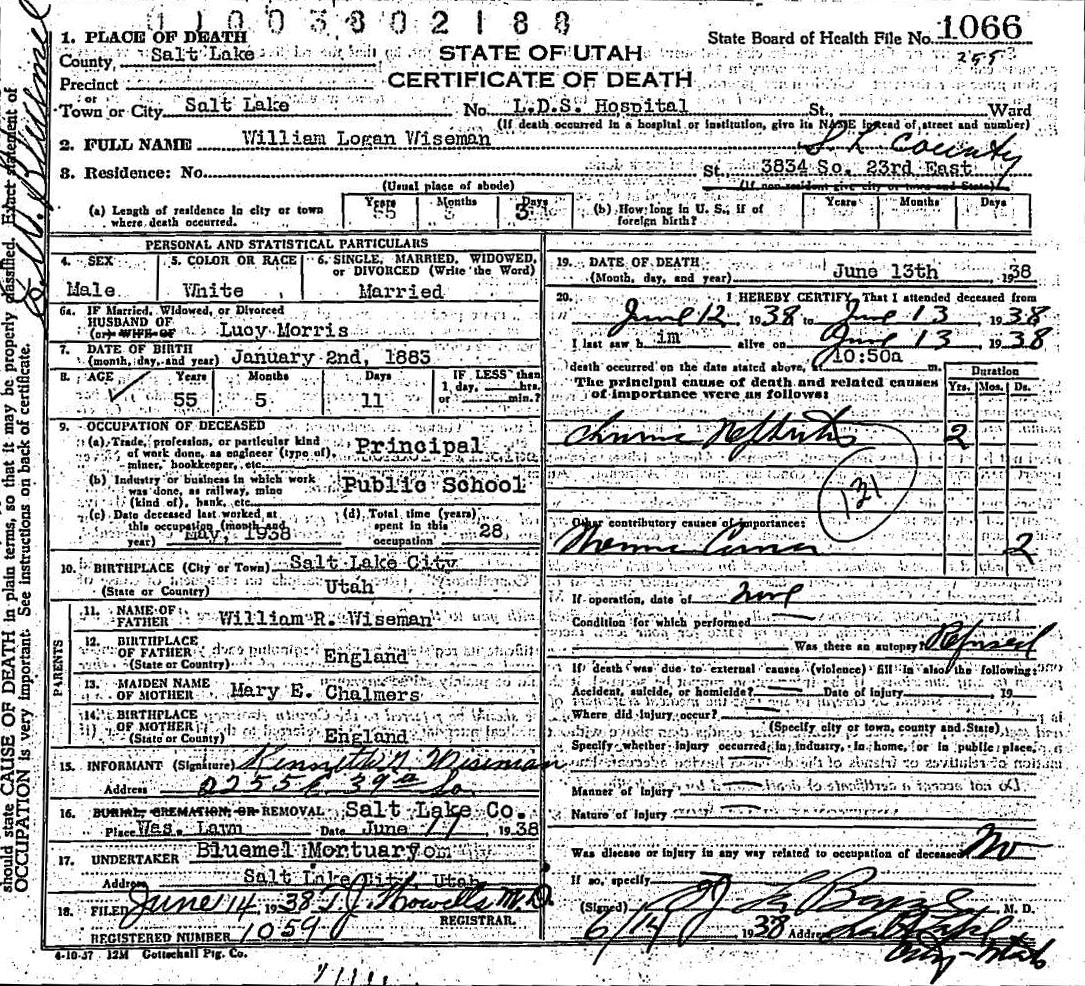 011003802188
1. PLACE OF DEATH
State Board of Health File No. 1066
County, Salt Lake
STATE OF UTAH
Precinct
CERTIFICATE OF DEATH
or
Town or City Salt Lake No. L.D.S. Hospital St. Ward
(If death occurred in a hospital or institution, give its NAME instead of street and number)
2. FULL NAME William Logan Wiseman
S. L. County
3. Residence: No. St. 3834 So. 23rd East
(Usual place of abode) (If non-resident give city or town and State)
(a) Length of residence in city or town where death occurred. Years 55 Months 5 Days
(b) How long in U. S., if of foreign birth? Years Months Days
PERSONAL AND STATISTICAL PARTICULARS
4. SEX Male
5. COLOR OR RACE White
6. SINGLE, MARRIED, WIDOWED, or DIVORCED (Write the Word) Married
6a. IF Married, Widowed, or Divorced
HUSBAND OF
(or) WIFE OF Lucy Morris
7. DATE OF BIRTH
(month, day, and year) January 2nd, 1883
8. AGE Years 55 Months 5 Days 11 IF LESS than 1 day, hrs. or min.?
9. OCCUPATION OF DECEASED
(a) Trade, profession, or particular kind of work done, as engineer (type of), miner, bookkeeper, etc. Principal
(b) Industry or business in which work was done, as railway, mine (kind of), bank, etc. Public School
(c) Date deceased last worked at this occupation (month and year) May, 1938
(d) Total time (years) spent in this occupation 28
10. BIRTHPLACE (City or Town) Salt Lake City
(State or Country) Utah
PARENTS
11. NAME OF FATHER William R. Wiseman
12. BIRTHPLACE OF FATHER (State or Country) England
13. MAIDEN NAME OF MOTHER Mary E. Chalmers
14. BIRTHPLACE OF MOTHER (State or Country) England
15. INFORMANT (Signature) Kenneth N. Wiseman
Address 2255 E. 39th So.
16. BURIAL, CREMATION OR REMOVAL Salt Lake Co.
Place Was. Lawn Date June 17 1938
17. UNDERTAKER Bluemel Mortuary
Address Salt Lake City, Utah
18. FILED June 14, 1938 T. J. Howells M.D.
REGISTRAR.
REGISTERED NUMBER 1059
4-10-37 12M Gottschall Ptg. Co.
19. DATE OF DEATH
(Month, day, and year) June 13th 1938
20. I HEREBY CERTIFY, That I attended deceased from
June 12 1938 to June 13 1938
I last saw him alive on June 13 1938
death occurred on the date stated above, at 10:50a m.
The principal cause of death and related causes of importance were as follows:
Duration
Yrs. Mos. Ds.
Chronic Nephritis 2
131
Other contributory causes of importance:
Uremic Coma 2
If operation, date of None
Condition for which performed
Was there an autopsy? Refused
If death was due to external causes (violence) fill in also the following:
Accident, suicide, or homicide? Date of injury 19
Where did injury occur?
(Specify city or town, county and State)
Specify whether injury occurred in industry, in home, or in public place.
Manner of injury
Nature of injury
Was disease or injury in any way related to occupation of deceased No
If so, specify
(Signed) M. D.
6/14 1938 Address Salt Lake City-Utah
should state CAUSE OF DEATH in plain terms, so that it may be properly classified. Exact statement of
OCCUPATION is very important. See instructions on back of certificate.